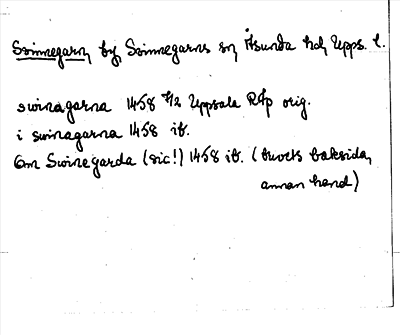 Svinnegarn, by, Svinnegarns sn, Åsunda hd, Upps. l.
swinagarna 1458 4/2 Uppsala RAp orig.
i swinagarna 1458 ib.
Om Swinegarda (sic!) 1458 ib. (brevets baksida,
annan hand)